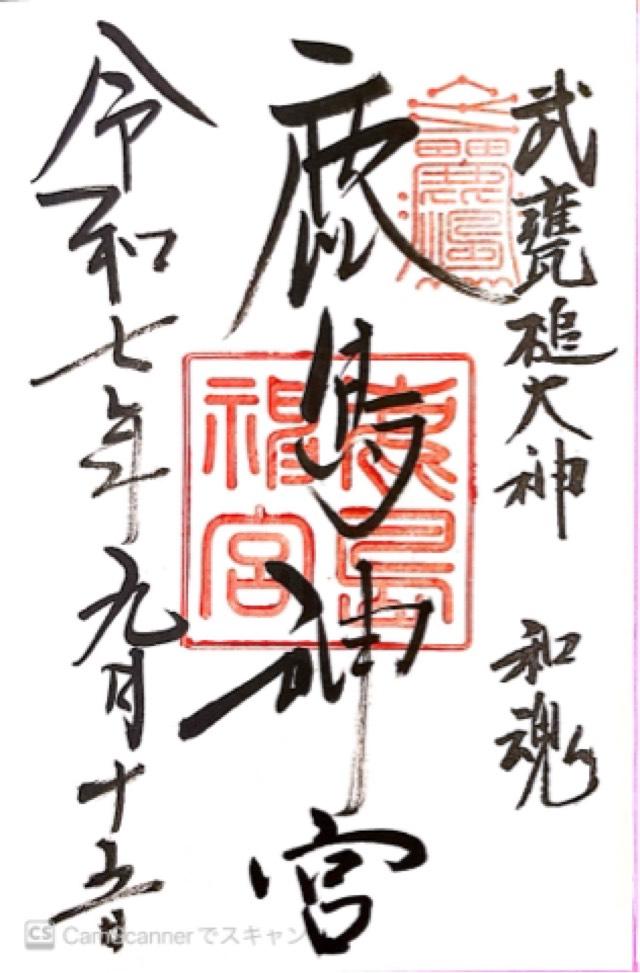 武甕槌大神 和魂
鹿島神宮
鹿島
神宮
令和七年九月十五日
CS CamScannerでスキャン